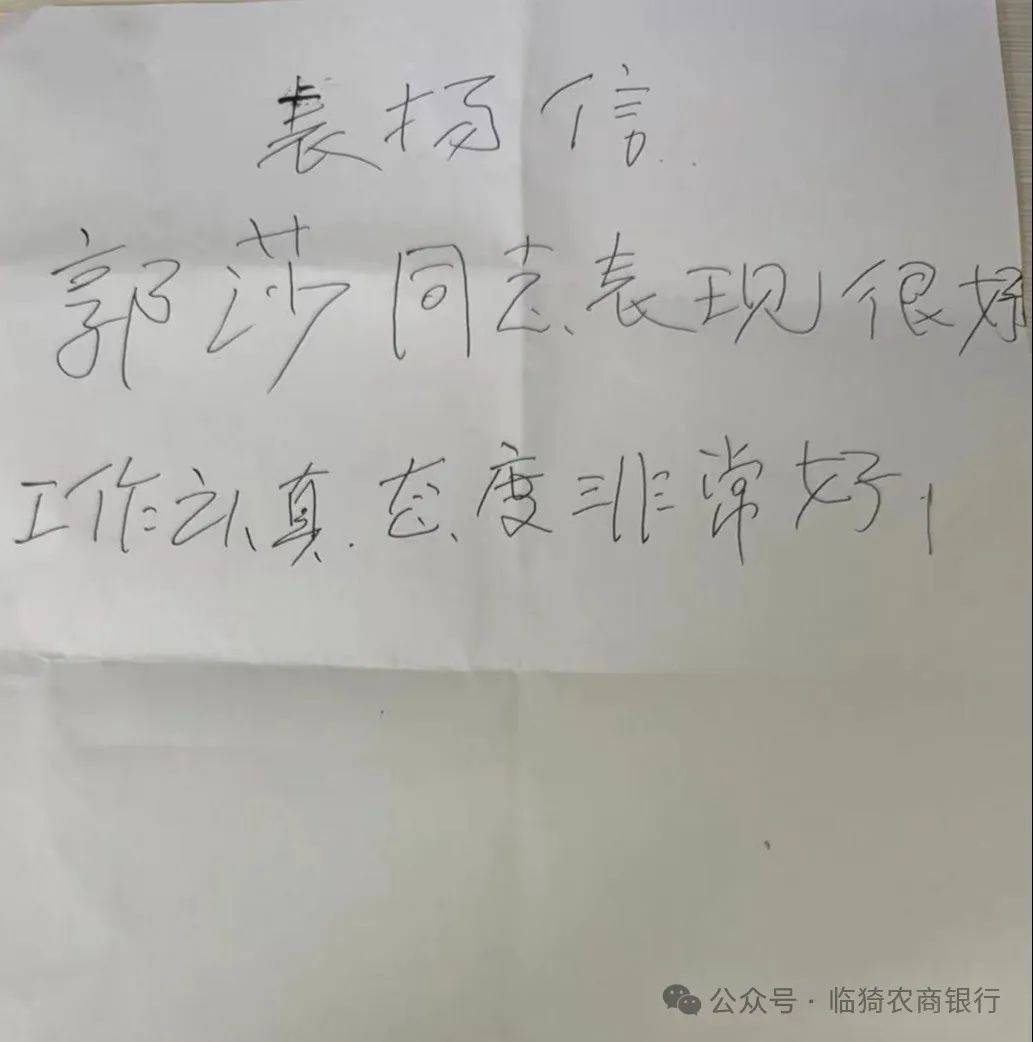 表扬信
郭莎同志表现很好
工作认真.态度非常好!
公众号·临猗农商银行